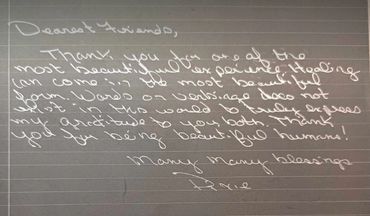 Dearest Friends,
Thank you for one of the
most beautiful experience. Healing
can come in the most beautiful
form. Words or verbiage does not
exist in this world to truly express
my gratitude to you both. Thank
you for being beautiful humans!
Many Many blessings